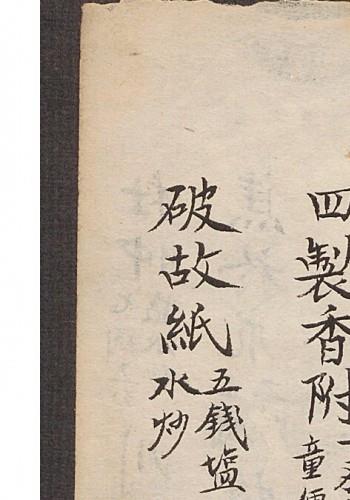 四製香附
童便
破故紙
五錢塩
水炒